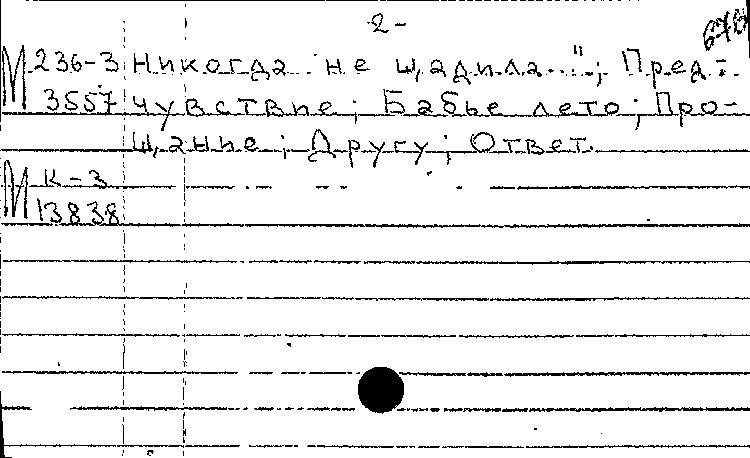 2-
М 236-3 никогда не щадила..."; Пред-
3557 чувствие; Бабье лето; Про-
щание; Другу; Ответ.
М К-3
13838